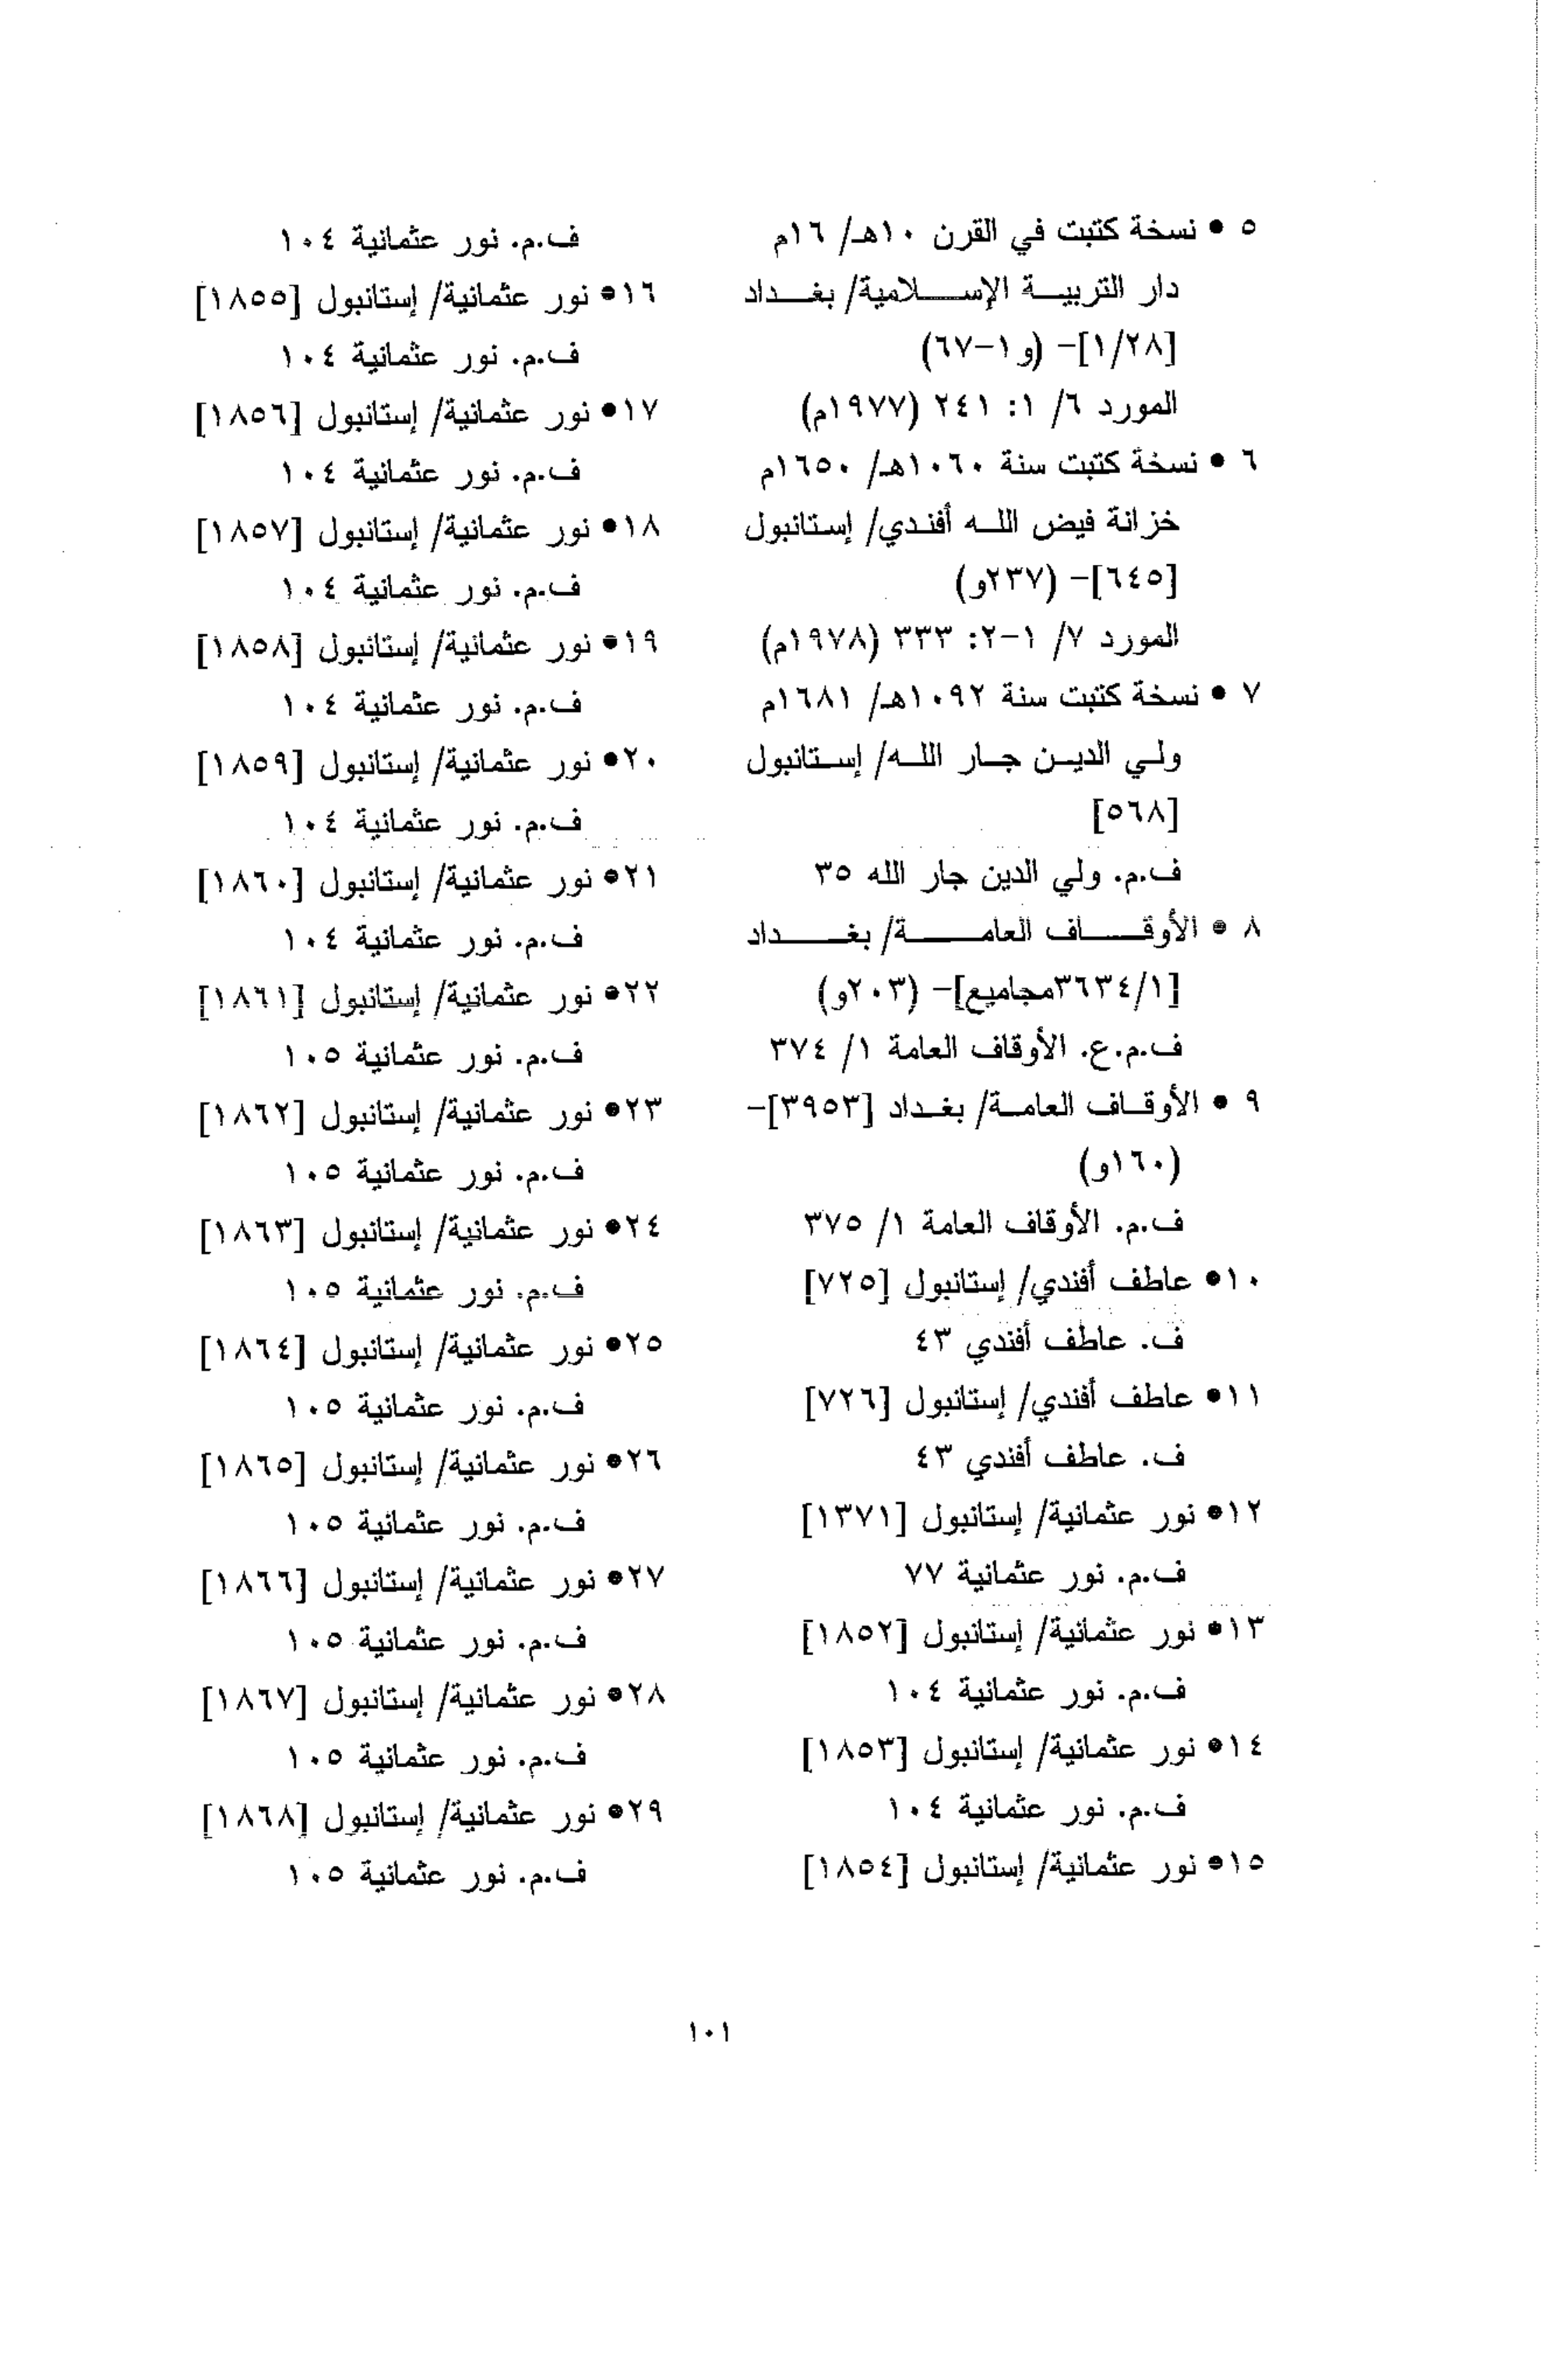 ٥ • نسخة كتبت في القرن ١٠هـ/ ١٦م
دار التربية الإسلامية/ بغداد
[١/٢٨]- (و١-٦٧)
المورد ٦/ ١: ٢٤١ (١٩٧٧م)
٦ • نسخة كتبت سنة ١٠٦٠هـ/ ١٦٥٠م
خزانة فيض الله أفندي/ إستانبول
[٦٤٥]- (٢٣٧و)
المورد ٧/ ١-٢: ٣٣٣ (١٩٧٨م)
٧ • نسخة كتبت سنة ١٠٩٢هـ/ ١٦٨١م
ولي الدين جار الله/ إستانبول
[٥٦٨]
ف.م. ولي الدين جار الله ٣٥
٨ • الأوقاف العامة/ بغداد
[٣٦٣٤/١مجاميع]- (٢٠٣و)
ف.م.ع. الأوقاف العامة ١/ ٣٧٤
٩ • الأوقاف العامة/ بغداد [٣٩٥٣]-
(١٦٠و)
ف.م. الأوقاف العامة ١/ ٣٧٥
١٠• عاطف أفندي/ إستانبول [٧٢٥]
ف. عاطف أفندي ٤٣
١١• عاطف أفندي/ إستانبول [٧٢٦]
ف. عاطف أفندي ٤٣
١٢• نور عثمانية/ إستانبول [١٣٧١]
ف.م. نور عثمانية ٧٧
١٣• نور عثمانية/ إستانبول [١٨٥٢]
ف.م. نور عثمانية ١٠٤
١٤• نور عثمانية/ إستانبول [١٨٥٣]
ف.م. نور عثمانية ١٠٤
١٥• نور عثمانية/ إستانبول [١٨٥٤]
ف.م. نور عثمانية ١٠٤
١٦• نور عثمانية/ إستانبول [١٨٥٥]
ف.م. نور عثمانية ١٠٤
١٧• نور عثمانية/ إستانبول [١٨٥٦]
ف.م. نور عثمانية ١٠٤
١٨• نور عثمانية/ إستانبول [١٨٥٧]
ف.م. نور عثمانية ١٠٤
١٩• نور عثمانية/ إستانبول [١٨٥٨]
ف.م. نور عثمانية ١٠٤
٢٠• نور عثمانية/ إستانبول [١٨٥٩]
ف.م. نور عثمانية ١٠٤
٢١• نور عثمانية/ إستانبول [١٨٦٠]
ف.م. نور عثمانية ١٠٤
٢٢• نور عثمانية/ إستانبول [١٨٦١]
ف.م. نور عثمانية ١٠٥
٢٣• نور عثمانية/ إستانبول [١٨٦٢]
ف.م. نور عثمانية ١٠٥
٢٤• نور عثمانية/ إستانبول [١٨٦٣]
ف.م. نور عثمانية ١٠٥
٢٥• نور عثمانية/ إستانبول [١٨٦٤]
ف.م. نور عثمانية ١٠٥
٢٦• نور عثمانية/ إستانبول [١٨٦٥]
ف.م. نور عثمانية ١٠٥
٢٧• نور عثمانية/ إستانبول [١٨٦٦]
ف.م. نور عثمانية ١٠٥
٢٨• نور عثمانية/ إستانبول [١٨٦٧]
ف.م. نور عثمانية ١٠٥
٢٩• نور عثمانية/ إستانبول [١٨٦٨]
ف.م. نور عثمانية ١٠٥
١٠١